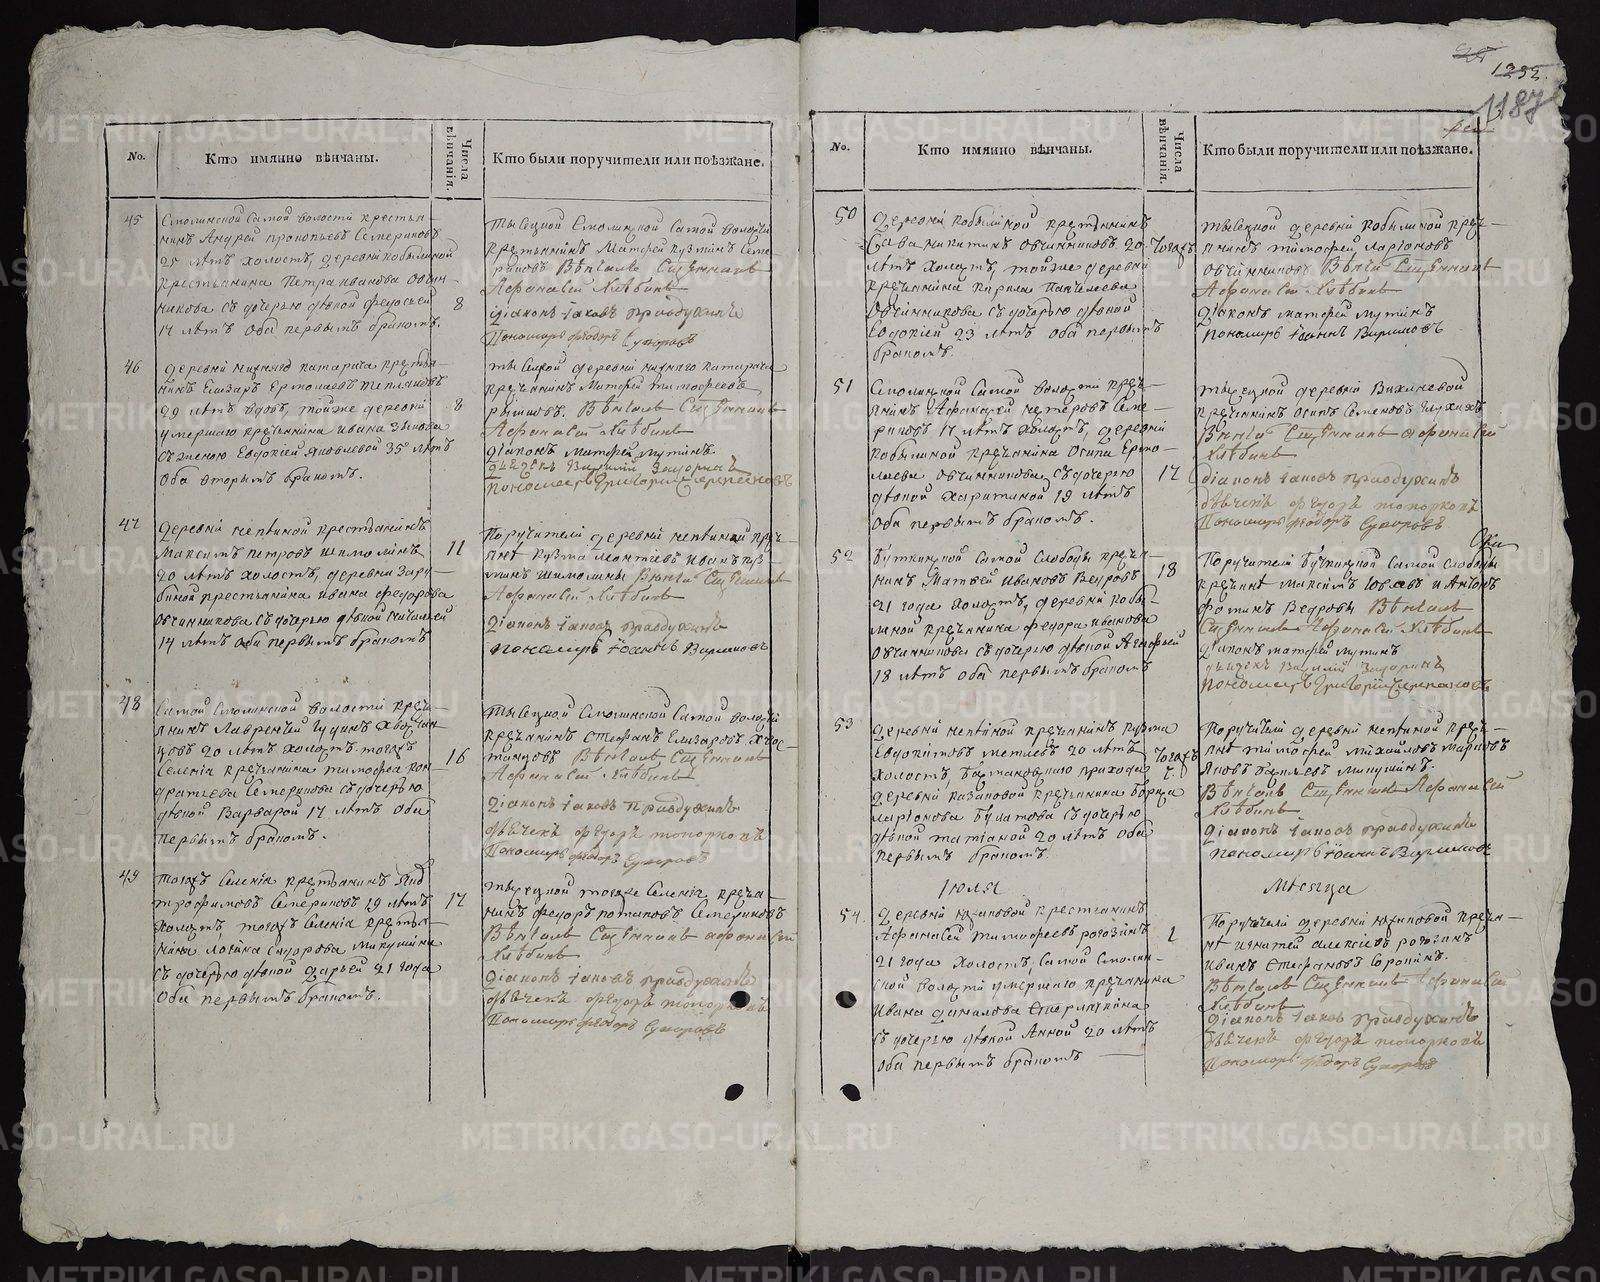 1292.
1187
No.
Кто имянно вѣнчаны.
Числа вѣнчанія.
Кто были поручители или поѣзжане.
45
Смолинской самой волости крестья-
нинъ Андрей Прокопьевъ Семериковъ
25 лѣтъ холостъ, деревни Кобылиной
крестьянина Петра Иванова Овчин-
никова съ дочерью дѣвкой Федосьей
17 лѣтъ оба первымъ бракомъ.
8
тысецкой Смолинской самой волости
крестьянинъ Матфей Кузминъ Семе-
риковъ Вѣнчалъ Священникъ
Афанасей Хлѣбинъ
Діаконъ Іаковъ Правдухинъ
Пономарь Федоръ Суворовъ
46
деревни нижняго Катарача крестья-
нинъ Елизаръ Ермолаевъ Тепляковъ
29 лѣтъ вдовъ, тойже деревни
умершаго крестьянина Ивана Зыкова
съ женою Евдокией Яковлевой 35 лѣтъ
оба вторымъ бракомъ.
8
тысецкой деревни нижняго Катарача
крестьянинъ Матфей Тимофеевъ
Вѣнчалъ Священникъ
Афанасей Хлѣбинъ
Діаконъ Матфей Мутинъ
дьячекъ Василий
пономарь Григорий
47
деревни Непеиной крестьянинъ
Максимъ Петровъ Шимолинъ
20 лѣтъ холостъ, деревни Зару-
биной крестьянина Ивана Федорова
Овчинникова съ дочерью дѣвкой
14 лѣтъ оба первымъ бракомъ
11
Поручители деревни Непеиной крестья-
не Кузма Леонтиевъ Иванъ Куз-
минъ Шимолины Вѣнчалъ Священникъ
Афанасей Хлѣбинъ
Діаконъ Іаковъ Правдухинъ
пономарь Іоаннъ
48
Самой Смолинской волости кресть-
янинъ Лаврентей
20 лѣтъ холостъ тогожъ
селенія крестьянина Тимофея Кон-
дратьева Семерикова съ дочерью
дѣвкой Варварой 17 лѣтъ оба
первымъ бракомъ.
16
тысецкой Смолинской самой волости
крестьянинъ Степанъ Елизаровъ
Вѣнчалъ Священникъ
Афанасей Хлѣбинъ
Діаконъ Іаковъ Правдухинъ
дьячекъ Федоръ Топорковъ
Пономарь Федоръ Суворовъ
49
тогожъ селенія крестьянинъ
Трофимовъ Семериковъ 19 лѣтъ
холостъ, тогожъ селенія крестья-
нина Логина Сидорова Микушина
съ дочерью дѣвкой Дарьей 21 года
оба первымъ бракомъ.
17
тысецкой тогоже селенія крестья-
нинъ Федоръ Потаповъ Семериковъ
Вѣнчалъ Священникъ Афанасей
Хлѣбинъ
Діаконъ Іаковъ Правдухинъ
дьячекъ Федоръ Топорковъ
Пономарь Федоръ Суворовъ
No.
Кто имянно вѣнчаны.
Числа вѣнчанія.
Кто были поручители или поѣзжане.
50
Деревни Кобылиной крестьянинъ
Сава Никитинъ Овчинниковъ 20
лѣтъ холостъ, тойже деревни
крестьянина Кирила Пантелеева
Овчинникова съ дочерью дѣвкой
Евдокией 23 лѣтъ оба первымъ
бракомъ.
Тогожъ
тысецкой деревни Кобылиной кресть-
янинъ Тимофей Ларіоновъ
Овчинниковъ Вѣнчалъ Священникъ
Афанасей Хлѣбинъ
Діаконъ Матфей Мутинъ
пономарь Іоаннъ
51
Смолинской самой волости кресть-
янинъ Афанасей Петровъ Семе-
риковъ 17 лѣтъ холостъ, деревни
Кобылиной крестьянина Осипа Ермо-
лаева Овчинникова съ дочерью
дѣвкой Харитиной 19 лѣтъ
оба первымъ бракомъ.
17
тысецкой деревни Вихляевой
крестьянинъ Осипъ Семеновъ Глухихъ
Вѣнчалъ Священникъ Афанасей
Хлѣбинъ
Діаконъ Іаковъ Правдухинъ
дьячекъ Федоръ Топорковъ
Пономарь Федоръ Суворовъ
52
Буткинской самой слободы кресть-
нинъ Матвей Ивановъ Ведровъ
21 года холостъ, деревни Кобы-
линой крестьянина Федора Иванова
Овчинникова съ дочерью дѣвкой Агафьей
18 лѣтъ оба первымъ бракомъ
18
Поручители Буткинской самой слободы
крестьяне Максимъ и Антонъ
Фотинъ Ведровы Вѣнчалъ
Священникъ Афанасей Хлѣбинъ
Діаконъ Матфей Мутинъ
дьячекъ Василий
пономарь Григорий
53
деревни Непеиной крестьянинъ Кузма
Евдокимовъ Метлевъ 20 лѣтъ
холостъ, прихода
деревни Казаковой крестьянина Бориса
Ларіонова Булатова съ дочерью
дѣвкой Татіаной 20 лѣтъ оба
первымъ бракомъ.
Тогожъ ч.
Поручители деревни Непеиной кресть-
яне Тимофей Михайловъ Марковъ
Яковъ Микушинъ.
Вѣнчалъ Священникъ Афанасей
Хлѣбинъ
Діаконъ Іаковъ Правдухинъ
пономарь Іоаннъ
Іюля
мѣсяца
54.
деревни Юдиновой крестьянинъ
Афанасей Тимофеевъ Рогозинъ
21 года холостъ, самой Смолин-
ской волости умершаго крестьянина
Ивана
съ дочерью дѣвкой Анной 20 лѣтъ
оба первымъ бракомъ
1
Поручители деревни крестья-
не Игнатей Алексіевъ Рогозинъ
Иванъ Стефановъ Сорокинъ.
Вѣнчалъ Священникъ Афанасей
Хлѣбинъ
Діаконъ Іаковъ Правдухинъ
дьячекъ Федоръ Топорковъ
Пономарь Федоръ Суворовъ
METRIKI.GASO-URAL.RU